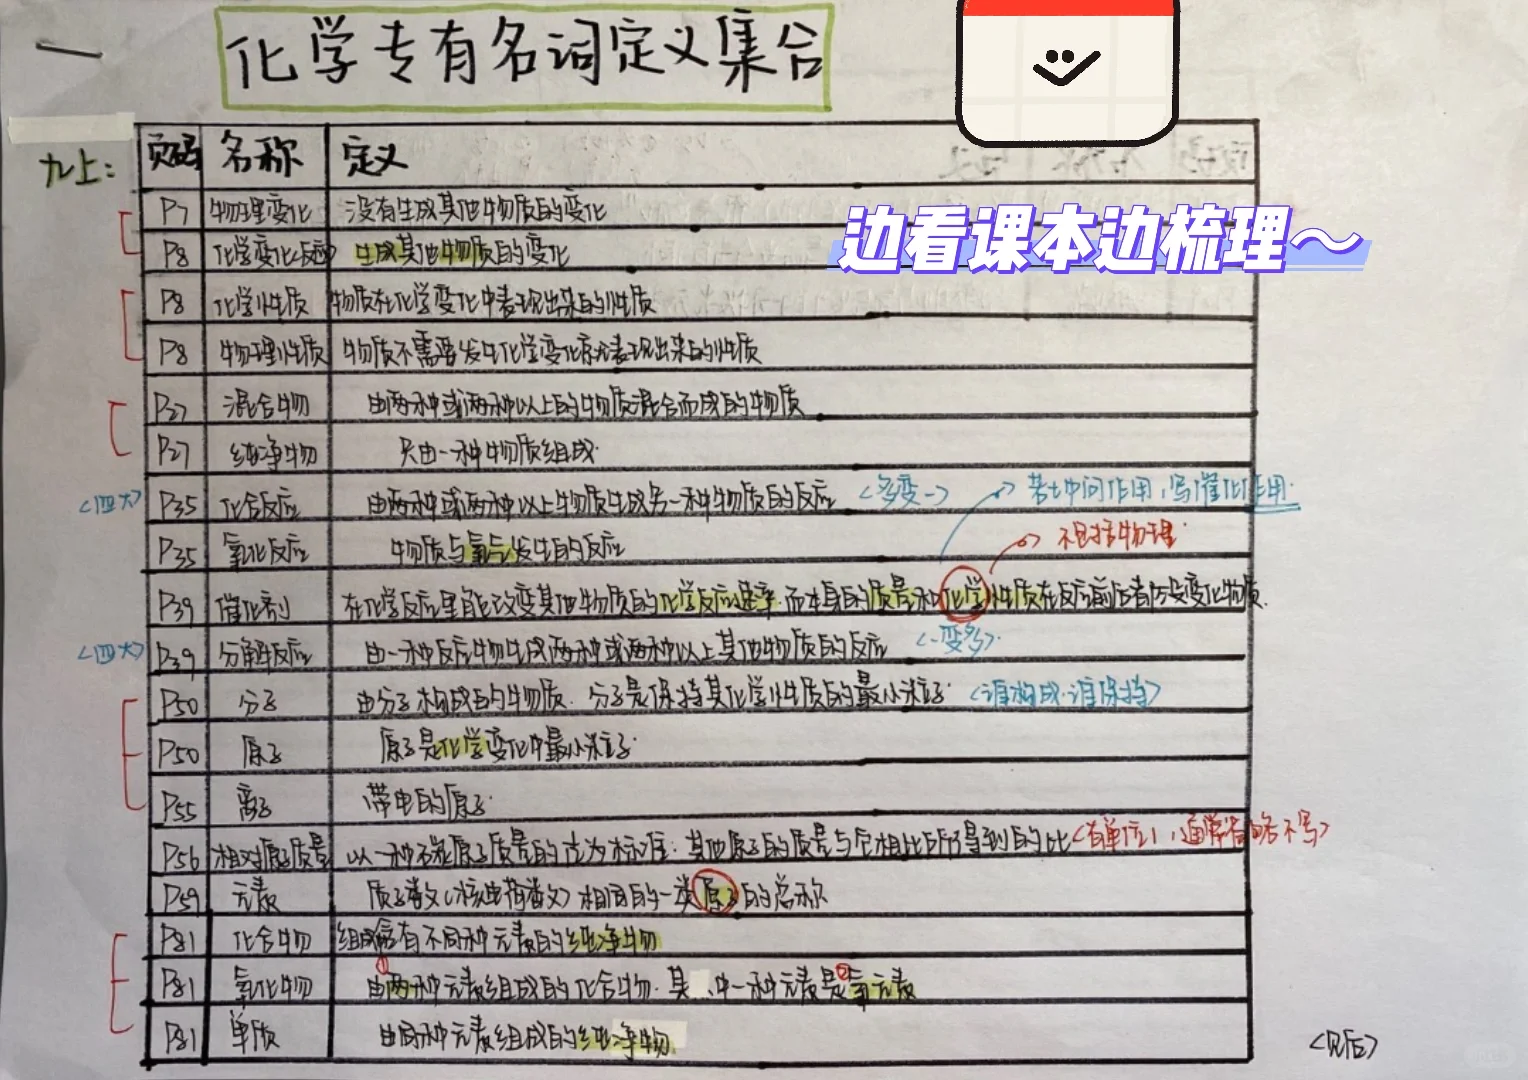 化学专有名词定义集合
九上：
页码 名称 定义
边看课本边梳理～
P7 物理变化 没有生成其他物质的变化
P8 化学变化(反应) 生成其他物质的变化
P8 化学性质 物质在化学变化中表现出来的性质
P8 物理性质 物质不需要发生化学变化就表现出来的性质
P27 混合物 由两种或两种以上的物质混合而成的物质
P27 纯净物 只由一种物质组成.
<四大> P35 化合反应 由两种或两种以上物质生成另一种物质的反应 <多变一> 若起中间作用,写催化作用.
P35 氧化反应 物质与氧气发生的反应 不包括物理.
P39 催化剂 在化学反应里能改变其他物质的化学反应速率.而本身的质量和化学性质在反应前后都没变化物质.
<四大> P39 分解反应 由一种反应物生成两种或两种以上其他物质的反应 <一变多>.
P50 分子 由分子构成的物质.分子是保持其化学性质的最小粒子. <谁构成.谁保持>
P50 原子 原子是化学变化中最小粒子.
P55 离子 带电的原子.
P56 相对原子质量 以一种碳原子质量的 作为标准.其他原子的质量与它相比所得到的比 <有单位1,通常省略不写>
P59 元素 质子数(核电荷数)相同的一类原子的总称
P81 化合物 组成含有不同种元素的纯净物
P81 氧化物 由①两种元素组成的化合物.其中一种元素是②氧元素
P81 单质 由同种元素组成的纯净物.
<见后>